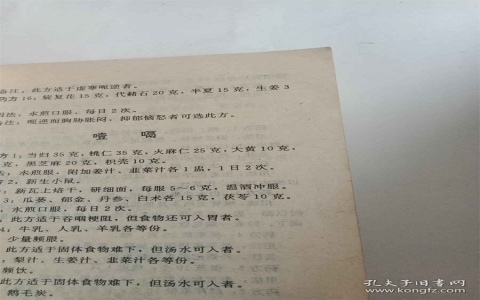 备注，此方适于虚寒呃逆者。
方16，旋复花15克，代赭石20克，半夏15克，生姜3
用法：水煎口服，每日2次。
备注：呃逆而胸胁胀闷，抑郁恼怒者可选此方。
噎 膈
方1：当归35克，桃仁35克，火麻仁25克，大黄10克，
克，黑芝麻20克，枳壳10克。
法：水煎服，附加姜汁、韭菜汁各1盅，1日2次。
2，新生小鼠。
：新瓦上焙干，研细面，每服5～6克，温酒冲服。
3，瓜蒌、郁金、丹参、白术各15克，茯苓10克。
，水煎口服，每日2次。
，此方适于吞咽梗阻，但食物还可入胃者。
4，牛乳、人乳、羊乳各等份。
少量频服。
此方适于固体食物难下，但汤水可入者。
，梨汁、生姜汁、韭菜汁各等份。
频饮。
方适于固体食物难下，但汤水可入者。
鹅毛炭。
孔夫子旧书网
www.kongfz.com